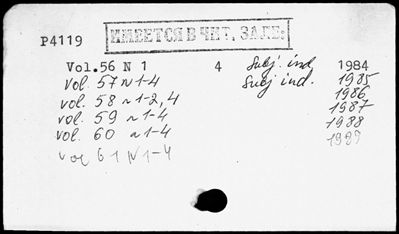 P4119 ИМЕЕТСЯ В ЧИТ. ЗАЛЕ:
Vol.56 N 1 4 Subj. ind 1984
vol. 57 N 1-4 Subj ind. 1985
vol. 58 N 1-2, 4 1986
vol. 59 N 1-4 1987
vol. 60 N 1-4 1988
vol 61 N 1-4 1989